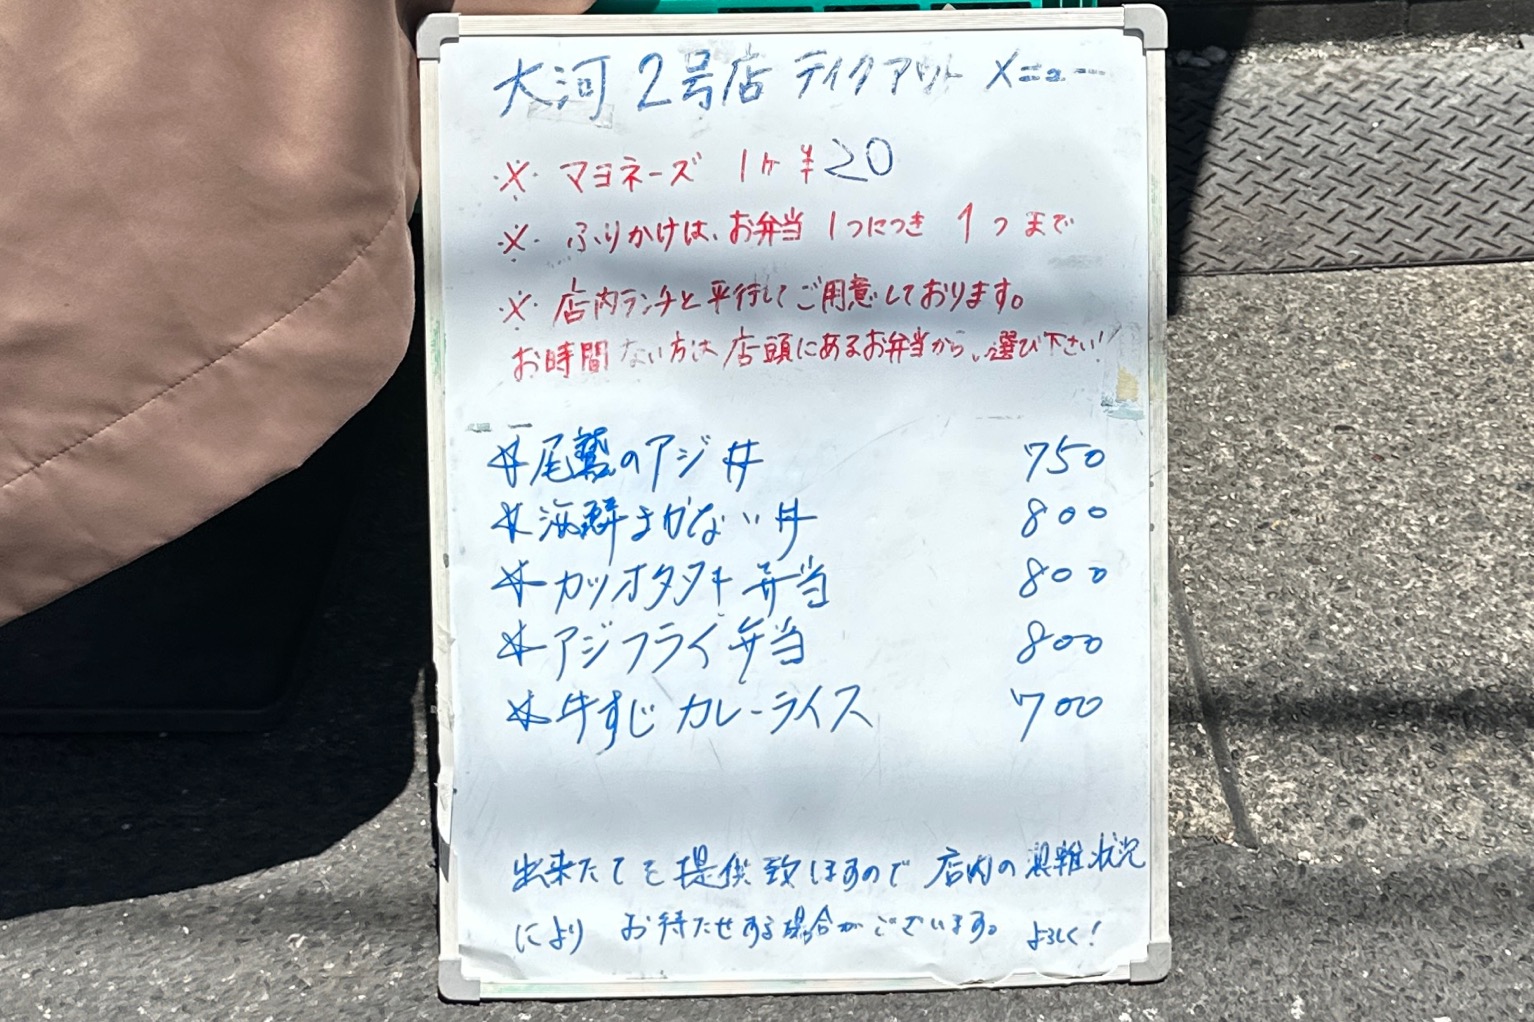 大河 2号店 テイクアウト メニュー
※ マヨネーズ 1ヶ ¥20
※ ふりかけは、お弁当 1つにつき 1つまで
※ 店内ランチと平行してご用意しております。
お時間ない方は店頭にあるお弁当からお選び下さい!
☆尾鷲のアジ丼 750
☆海鮮まかない丼 800
☆カツオタタキ弁当 800
☆アジフライ弁当 800
☆牛すじカレーライス 700
出来たてを提供致しますので店内の混雑状況
により お待たせする場合がございます。 よろしく!